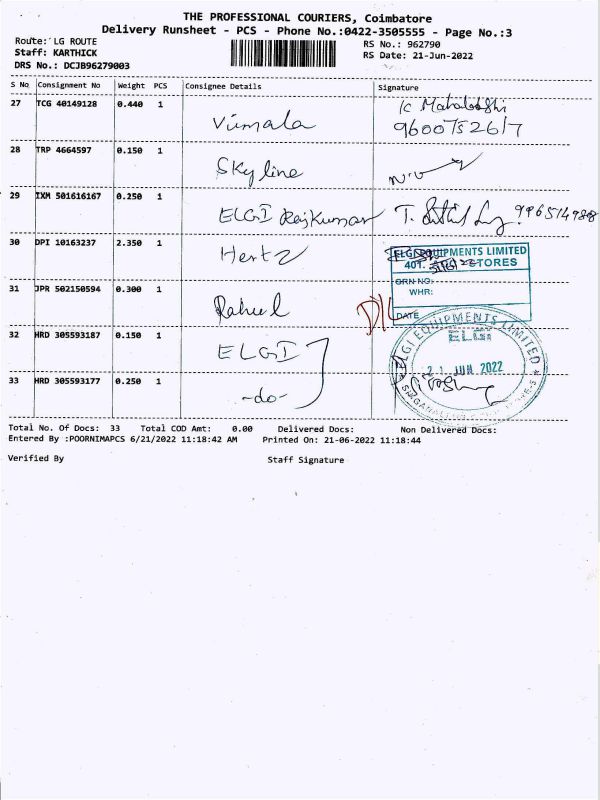 THE PROFESSIONAL COURIERS, Coimbatore
Delivery Runsheet - PCS - Phone No.:0422-3505555 - Page No.:3
Route: LG ROUTE
RS No.: 962790
Staff: KARTHICK
RS Date: 21-Jun-2022
DRS No.: DCJB96279003
S No Consignment No Weight PCS Consignee Details Signature
27 TCG 40149128 0.440 1 Vimala K Mahalakshi
9600752617
28 TRP 4664597 0.150 1 Skyline
29 IXM 501616167 0.250 1 ELGI Rajkumar T. 9965514988
30 DPI 10163237 2.350 1 Hertz
ELGI EQUIPMENTS LIMITED
401. STORES
GRN NO:
WHR:
DATE
31 JPR 502150594 0.300 1 Raheel D/L
32 HRD 305593187 0.150 1 ELGI
ELGI EQUIPMENTS LIMITED
ELGI
21 JUN 2022
33 HRD 305593177 0.250 1 -do-
Total No. Of Docs: 33 Total COD Amt: 0.00 Delivered Docs: Non Delivered Docs:
Entered By :POORNIMAPCS 6/21/2022 11:18:42 AM Printed On: 21-06-2022 11:18:44
Verified By Staff Signature